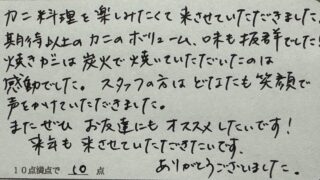 カニ料理を楽しみたくて来させていただきました。
期待以上のカニのボリューム、味も抜群でした!
焼きガニは炭火で焼いていただいたのは
感動でした。スタッフの方はどなたも笑顔で
声をかけていただきました。
またぜひお友達にもオススメしたいです!
来年も来させていただきたいです。
10点満点で 10 点 ありがとうございました。